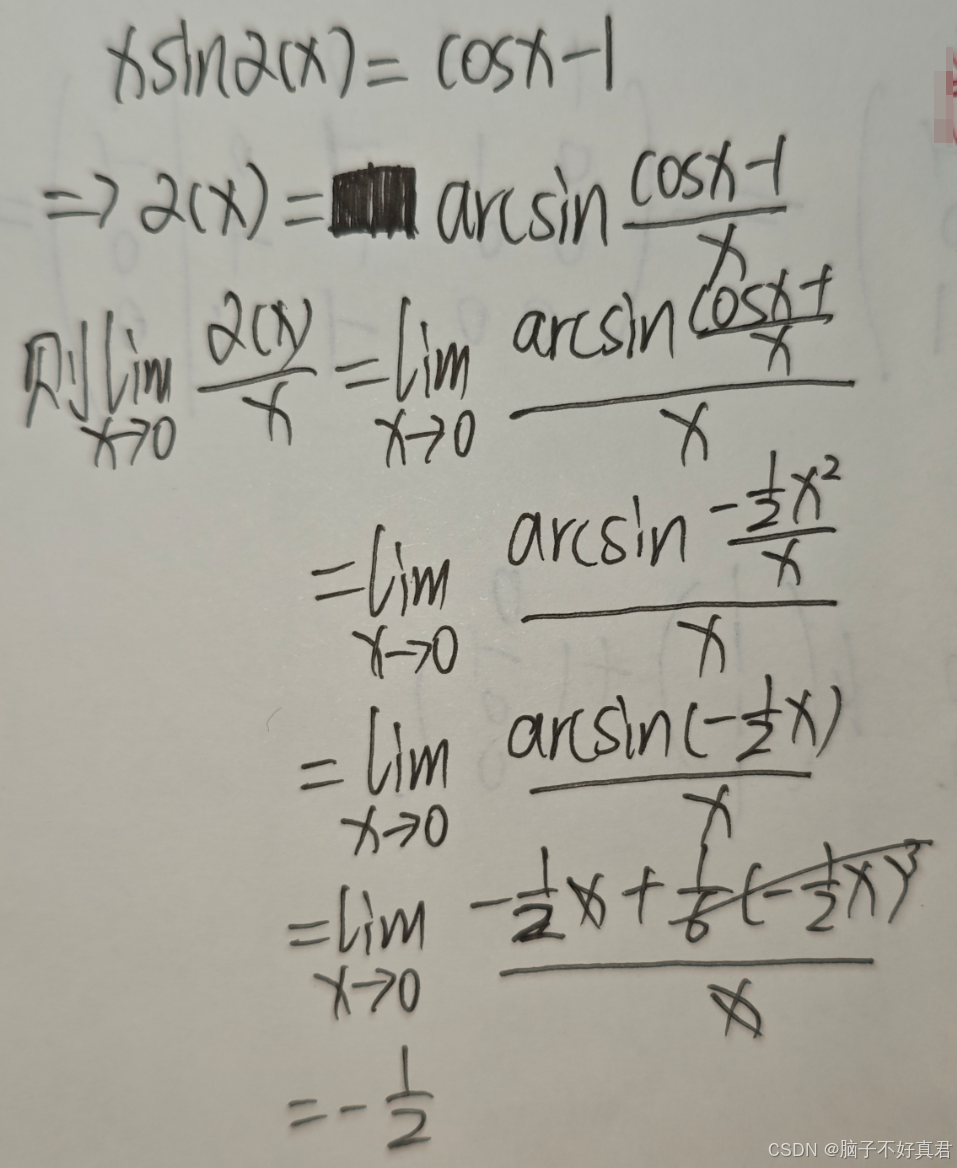 x sin2(x) = cosx-1
=> 2(x) = arcsin (cosx-1)/x
则 lim x→0 2(x)/x = lim x→0 (arcsin (cosx-1)/x)/x
= lim x→0 (arcsin (-1/2 x²)/x)/x
= lim x→0 arcsin(-1/2 x)/x
= lim x→0 (-1/2 x + 1/6 (-1/2 x)³)/x
= -1/2
CSDN @脑子不好真君